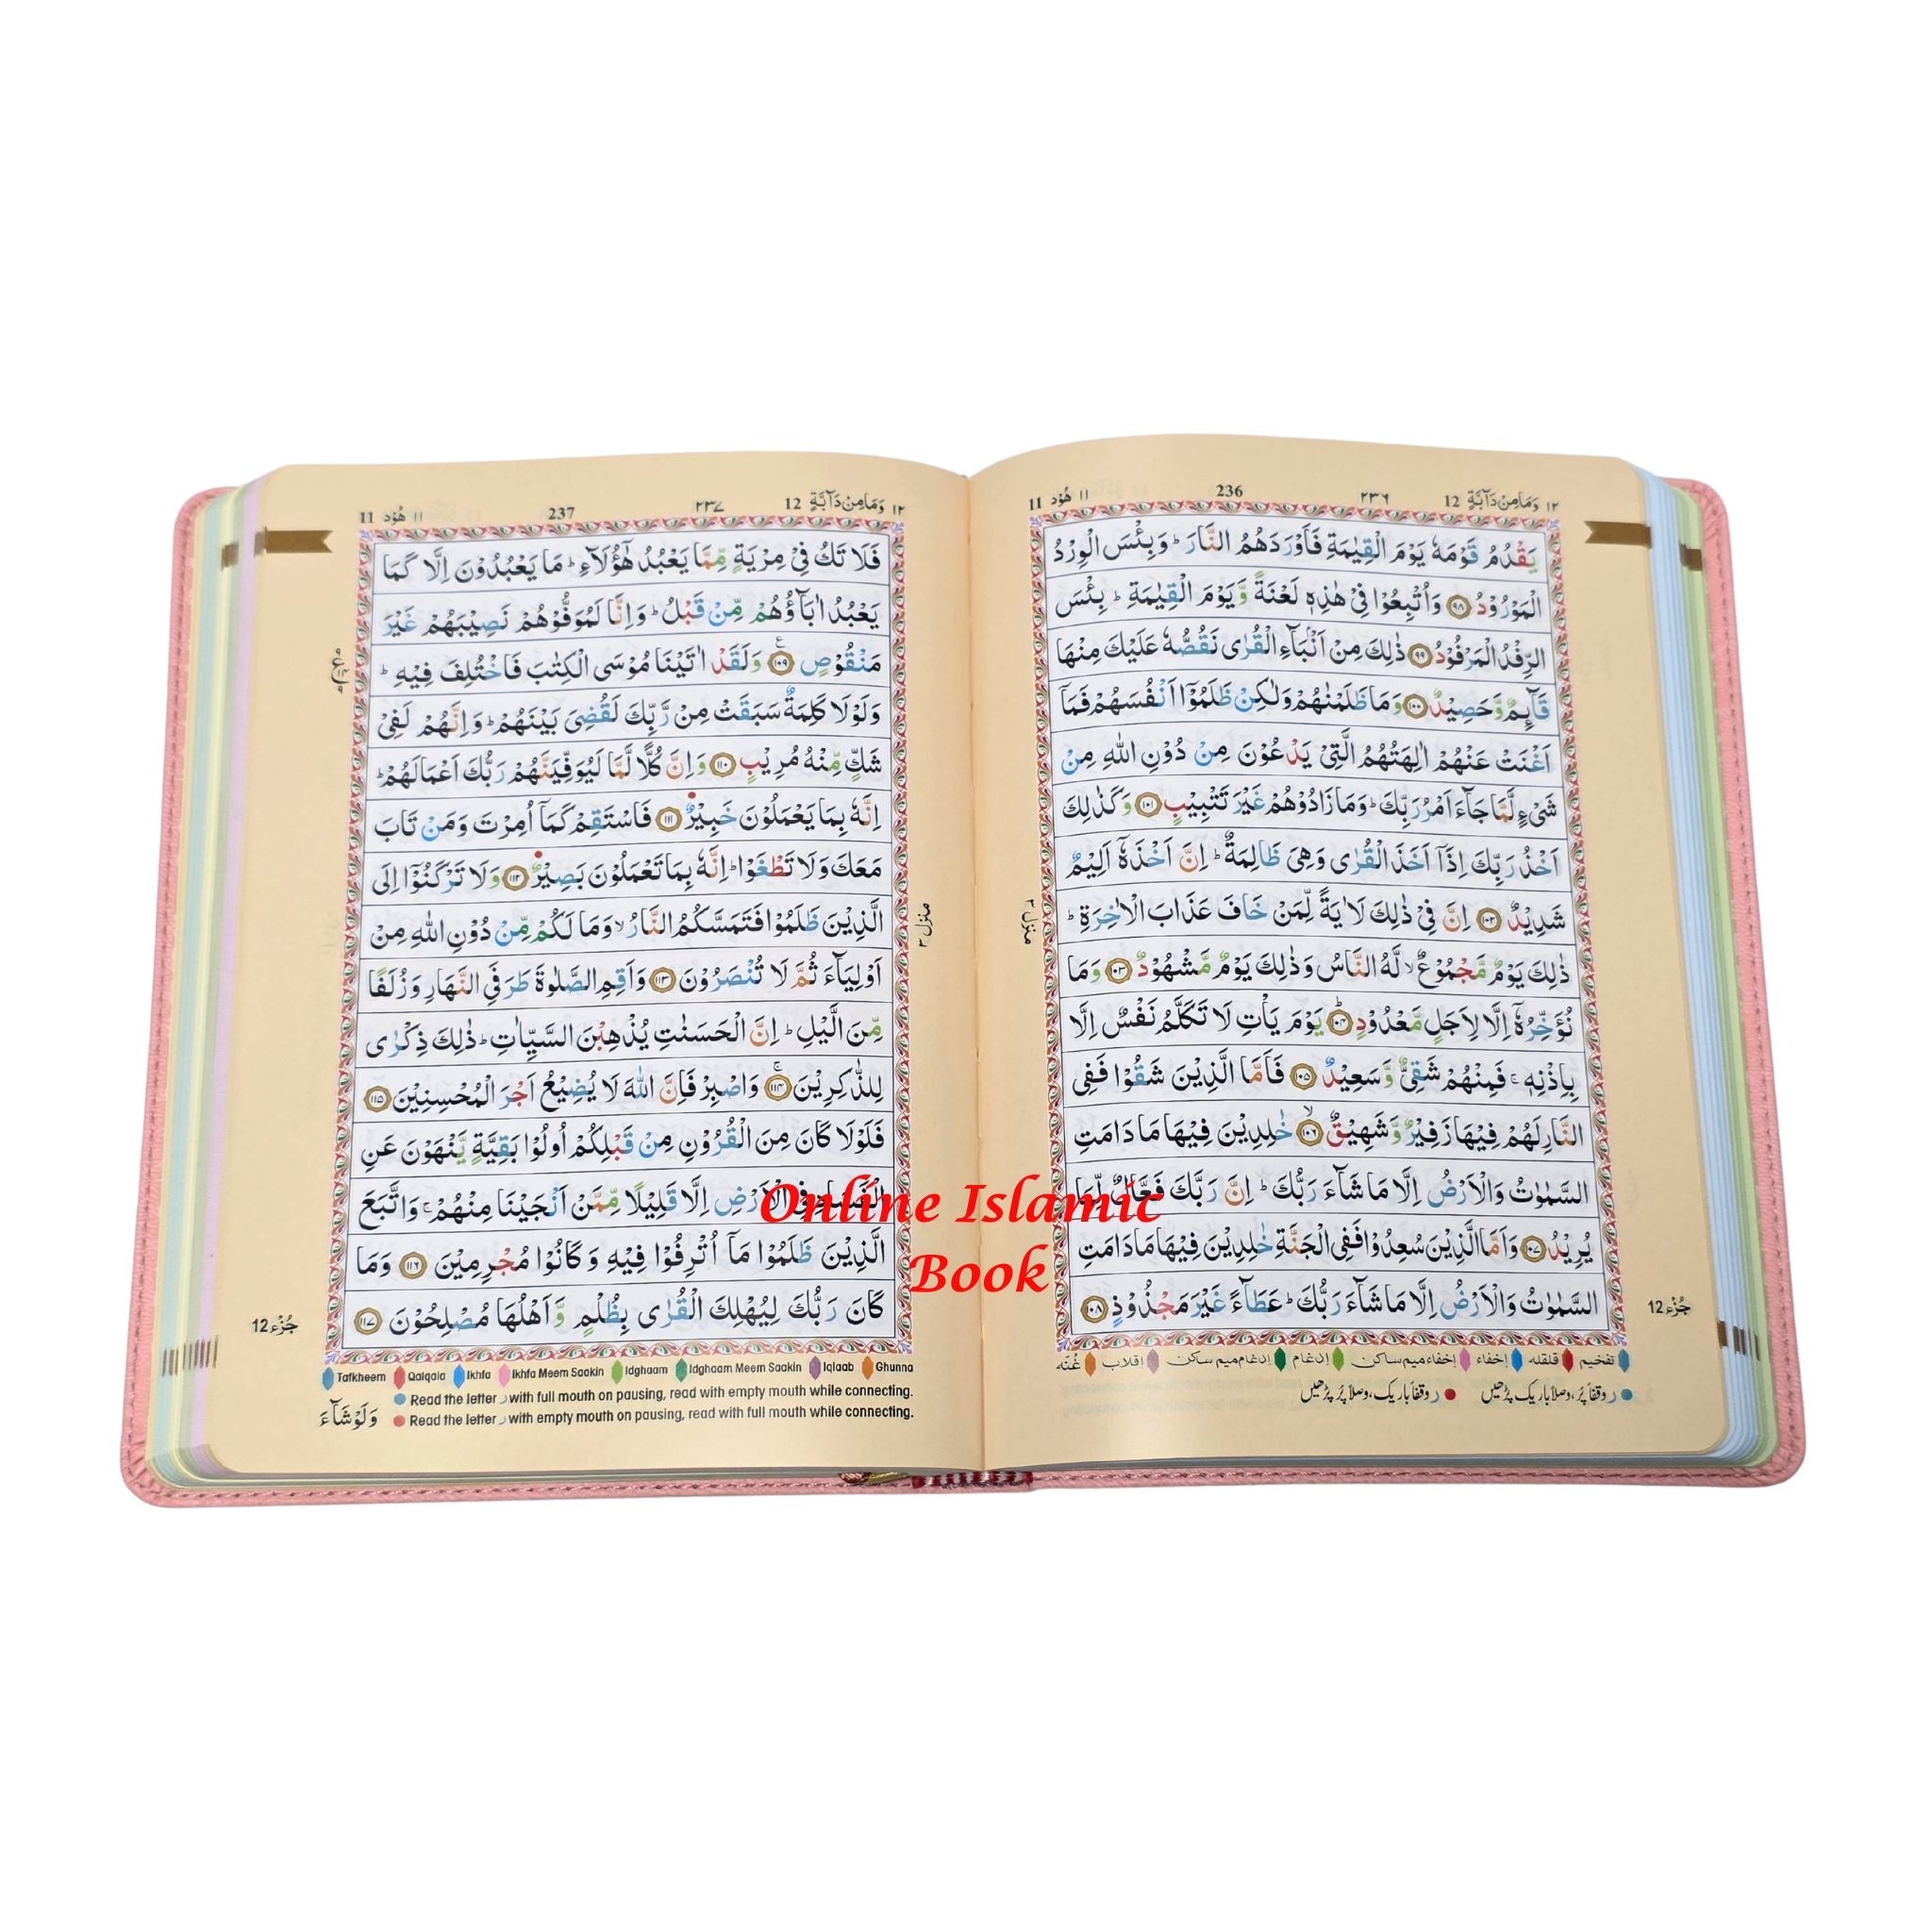 ١٢ وَمَا مِنْ دَآبَّةٍ 12 ٢٣٦ 236 ١١ هُوْد 11
يَقْدُمُ قَوْمَهٗ يَوْمَ الْقِيٰمَةِ فَاَوْرَدَهُمُ النَّارَ ؕ وَبِئْسَ الْوِرْدُ
الْمَوْرُوْدُ ۝۹۸ وَاُتْبِعُوْا فِىْ هٰذِهٖ لَعْنَةً وَّيَوْمَ الْقِيٰمَةِ ؕ بِئْسَ
الرِّفْدُ الْمَرْفُوْدُ ۝۹۹ ذٰلِكَ مِنْ اَنْۢبَآءِ الْقُرٰى نَقُصُّهٗ عَلَيْكَ مِنْهَا
قَآئِمٌ وَّحَصِيْدٌ ۝۱۰۰ وَمَا ظَلَمْنٰهُمْ وَلٰكِنْ ظَلَمُوْۤا اَنْفُسَهُمْ فَمَاۤ
اَغْنَتْ عَنْهُمْ اٰلِهَتُهُمُ الَّتِىْ يَدْعُوْنَ مِنْ دُوْنِ اللّٰهِ مِنْ
شَىْءٍ لَّمَّا جَآءَ اَمْرُ رَبِّكَ ؕ وَمَا زَادُوْهُمْ غَيْرَ تَتْبِيْبٍ ۝۱۰۱ وَكَذٰلِكَ
اَخْذُ رَبِّكَ اِذَاۤ اَخَذَ الْقُرٰى وَهِىَ ظَالِمَةٌ ؕ اِنَّ اَخْذَهٗۤ اَلِيْمٌ
شَدِيْدٌ ۝۱۰۲ اِنَّ فِىْ ذٰلِكَ لَاٰيَةً لِّمَنْ خَافَ عَذَابَ الْاٰخِرَةِ ؕ
ذٰلِكَ يَوْمٌ مَّجْمُوْعٌ ۙ لَّهُ النَّاسُ وَذٰلِكَ يَوْمٌ مَّشْهُوْدٌ ۝۱۰۳ وَمَا
نُؤَخِّرُهٗۤ اِلَّا لِاَجَلٍ مَّعْدُوْدٍ ؕ۝۱۰۴ يَوْمَ يَاْتِ لَا تَكَلَّمُ نَفْسٌ اِلَّا
بِاِذْنِهٖ ۚ فَمِنْهُمْ شَقِىٌّ وَّسَعِيْدٌ ۝۱۰۵ فَاَمَّا الَّذِيْنَ شَقُوْا فَفِى
النَّارِ لَهُمْ فِيْهَا زَفِيْرٌ وَّشَهِيْقٌ ۙ۝۱۰۶ خٰلِدِيْنَ فِيْهَا مَا دَامَتِ
السَّمٰوٰتُ وَالْاَرْضُ اِلَّا مَا شَآءَ رَبُّكَ ؕ اِنَّ رَبَّكَ فَعَّالٌ لِّمَا
يُرِيْدُ ۝۱۰۷ وَاَمَّا الَّذِيْنَ سُعِدُوْا فَفِى الْجَنَّةِ خٰلِدِيْنَ فِيْهَا مَا دَامَتِ
السَّمٰوٰتُ وَالْاَرْضُ اِلَّا مَا شَآءَ رَبُّكَ ؕ عَطَآءً غَيْرَ مَجْذُوْذٍ ۝۱۰۸
منزل ٣
جُزْء 12
تفخیم قلقله إخفاء إخفاء میم ساکن إدغام إدغام میم ساکن اقلاب غُنّه
ر وقفاً پُر، وصلاً باریک پڑھیں ر وقفاً باریک، وصلاً پُر پڑھیں
١٢ وَمَا مِنْ دَآبَّةٍ 12 ٢٣٧ 237 ١١ هُوْد 11
فَلَا تَكُ فِىْ مِرْيَةٍ مِّمَّا يَعْبُدُ هٰٓؤُلَآءِ ؕ مَا يَعْبُدُوْنَ اِلَّا كَمَا
يَعْبُدُ اٰبَآؤُهُمْ مِّنْ قَبْلُ ؕ وَاِنَّا لَمُوَفُّوْهُمْ نَصِيْبَهُمْ غَيْرَ
مَنْقُوْصٍ ۝۱۰۹ وَلَقَدْ اٰتَيْنَا مُوْسَى الْكِتٰبَ فَاخْتُلِفَ فِيْهِ ؕ
وَلَوْلَا كَلِمَةٌ سَبَقَتْ مِنْ رَّبِّكَ لَقُضِىَ بَيْنَهُمْ ؕ وَاِنَّهُمْ لَفِىْ
شَكٍّ مِّنْهُ مُرِيْبٍ ۝۱۱۰ وَاِنَّ كُلًّا لَّمَّا لَيُوَفِّيَنَّهُمْ رَبُّكَ اَعْمَالَهُمْ ؕ
اِنَّهٗ بِمَا يَعْمَلُوْنَ خَبِيْرٌ ۝۱۱۱ فَاسْتَقِمْ كَمَاۤ اُمِرْتَ وَمَنْ تَابَ
مَعَكَ وَلَا تَطْغَوْا ؕ اِنَّهٗ بِمَا تَعْمَلُوْنَ بَصِيْرٌ ۝۱۱۲ وَلَا تَرْكَنُوْۤا اِلَى
الَّذِيْنَ ظَلَمُوْا فَتَمَسَّكُمُ النَّارُ ۙ وَمَا لَكُمْ مِّنْ دُوْنِ اللّٰهِ مِنْ
اَوْلِيَآءَ ثُمَّ لَا تُنْصَرُوْنَ ۝۱۱۳ وَاَقِمِ الصَّلٰوةَ طَرَفَىِ النَّهَارِ وَزُلَفًا
مِّنَ الَّيْلِ ؕ اِنَّ الْحَسَنٰتِ يُذْهِبْنَ السَّيِّاٰتِ ؕ ذٰلِكَ ذِكْرٰى
لِلذّٰكِرِيْنَ ۚ۝۱۱۴ وَاصْبِرْ فَاِنَّ اللّٰهَ لَا يُضِيْعُ اَجْرَ الْمُحْسِنِيْنَ ۝۱۱۵
فَلَوْلَا كَانَ مِنَ الْقُرُوْنِ مِنْ قَبْلِكُمْ اُولُوْا بَقِيَّةٍ يَّنْهَوْنَ عَنِ
الْفَسَادِ فِى الْاَرْضِ اِلَّا قَلِيْلًا مِّمَّنْ اَنْجَيْنَا مِنْهُمْ ۚ وَاتَّبَعَ
الَّذِيْنَ ظَلَمُوْا مَاۤ اُتْرِفُوْا فِيْهِ وَكَانُوْا مُجْرِمِيْنَ ۝۱۱۶ وَمَا
كَانَ رَبُّكَ لِيُهْلِكَ الْقُرٰى بِظُلْمٍ وَّاَهْلُهَا مُصْلِحُوْنَ ۝۱۱۷
منزل ٣
جُزْء 12
Tafkheem Qalqala Ikhfa Ikhfa Meem Saakin Idghaam Idghaam Meem Saakin Iqlaab Ghunna
Read the letter ر with full mouth on pausing, read with empty mouth while connecting.
Read the letter ر with empty mouth on pausing, read with full mouth while connecting.
وَلَوْ شَآءَ
Online Islamic
Book